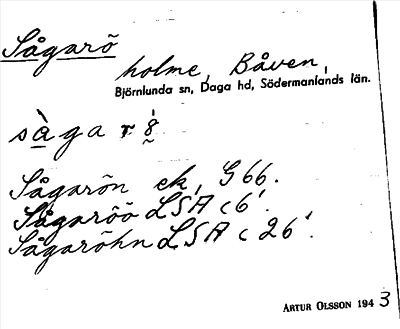 Sågarö
holme, Båven,
Björnlunda sn, Daga hd, Södermanlands län.
sàgarö̀
Sågarön ek, G 66.
Sågaröö LSA c 6'.
Sågaröhn LSA c 26'.
ARTUR OLSSON 1943